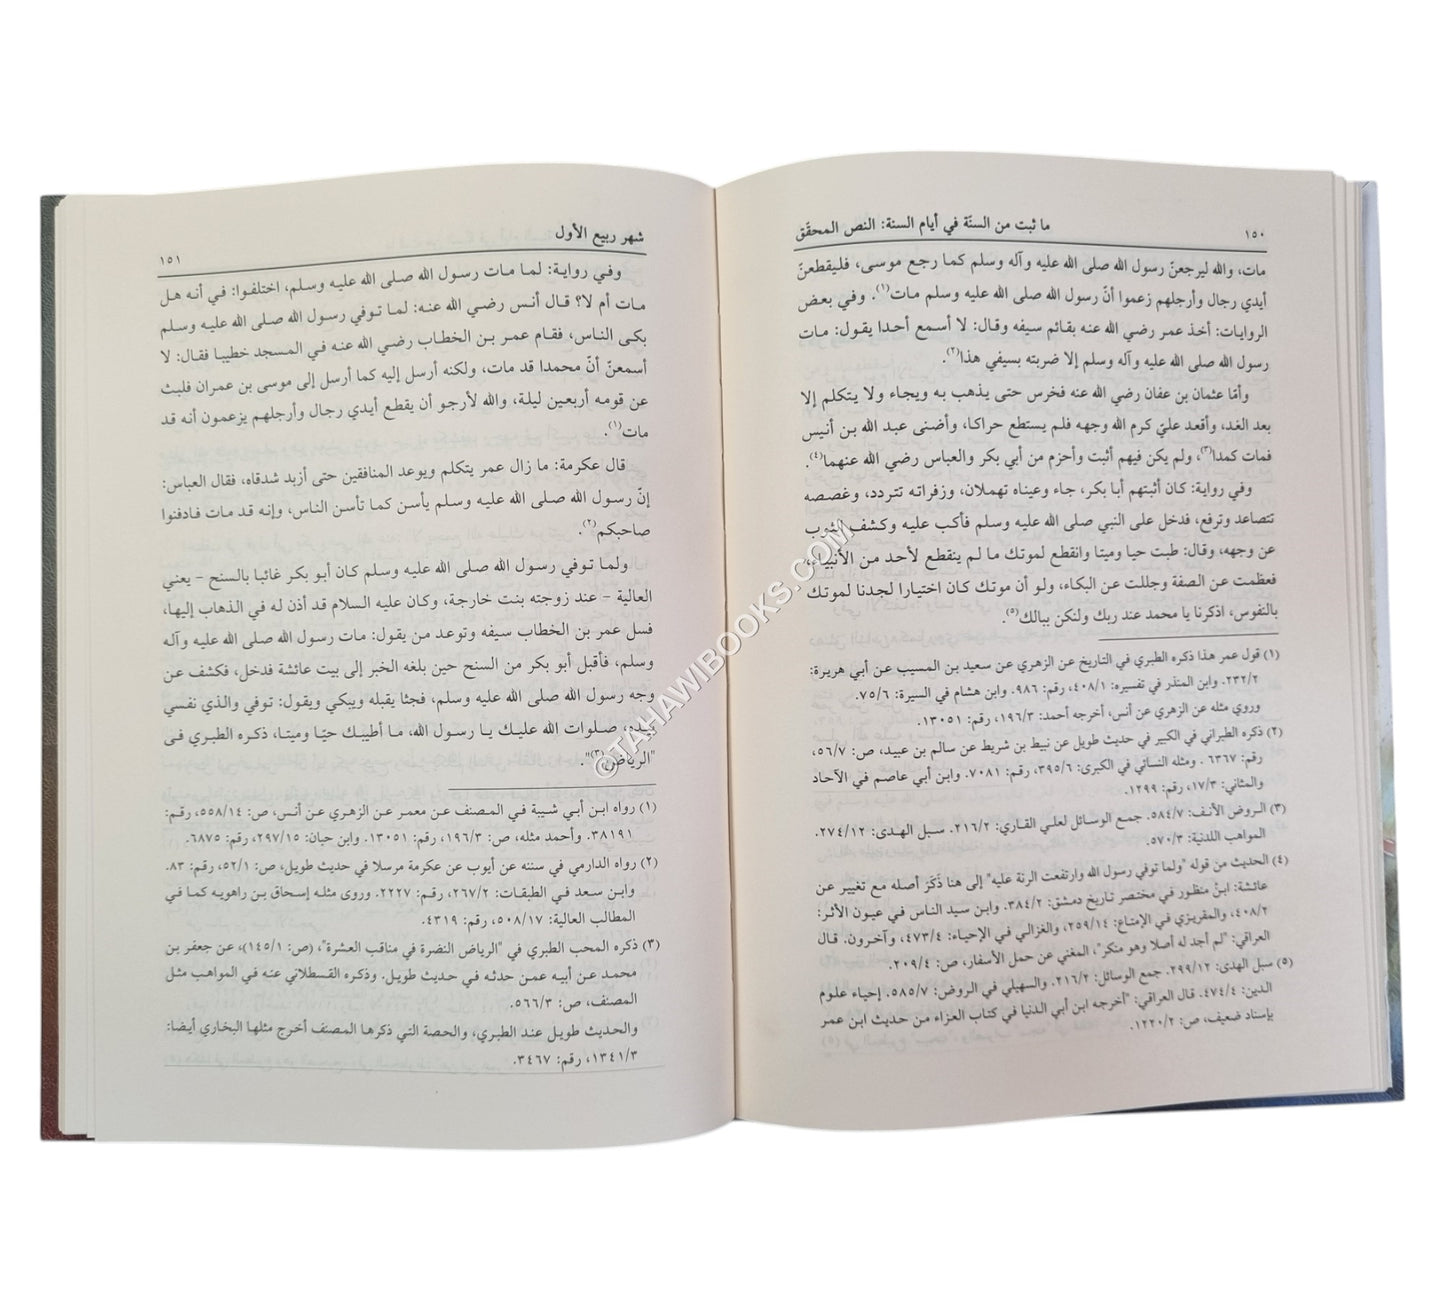 ١٥٠
ما ثبت من السنّة في أيام السنة: النص المحقّق
مات، والله ليرجعنّ رسول الله صلى الله عليه وآله وسلم كما رجع موسى، فليقطعنّ
أيدي رجال وأرجلهم زعموا أنّ رسول الله صلى الله عليه وسلم مات(١). وفي بعض
الروايات: أخذ عمر رضي الله عنه بقائم سيفه وقال: لا أسمع أحدا يقول: مات
رسول الله صلى الله عليه وآله وسلم إلا ضربته بسيفي هذا(٢).
وأمّا عثمان بن عفان رضي الله عنه فخرس حتى يذهب به ويجاء ولا يتكلم إلا
بعد الغد، وأقعد عليّ كرم الله وجهه فلم يستطع حراكا، وأضنى عبد الله بن أنيس
فمات كمدا(٣)، ولم يكن فيهم أثبت وأحزم من أبي بكر والعباس رضي الله عنهما(٤).
وفي رواية: كان أثبتهم أبا بكر، جاء وعيناه تهملان، وزفراته تتردد، وغصصه
تتصاعد وترفع، فدخل على النبي صلى الله عليه وسلم فأكب عليه وكشف الثوب
عن وجهه، وقال: طبت حيا وميتا وانقطع لموتك ما لم ينقطع لأحد من الأنبياء،
فعظمت عن الصفة وجللت عن البكاء، ولو أن موتك كان اختيارا لجدنا لموتك
بالنفوس، اذكرنا يا محمد عند ربك ولنكن ببالك(٥).
(١) قول عمر هذا ذكره الطبري في التاريخ عن الزهري عن سعيد بن المسيب عن أبي هريرة:
٢٣٢/٢. وابن المنذر في تفسيره: ٤٠٨/١، رقم: ٩٨٦. وابن هشام في السيرة: ٧٥/٦.
وروي مثله عن الزهري عن أنس، أخرجه أحمد: ١٩٦/٣، رقم: ١٣٠٥١.
(٢) ذكره الطبراني في الكبير في حديث طويل عن نبيط بن شريط عن سالم بن عبيد، ص: ٥٦/٧،
رقم: ٦٣٦٧. ومثله النسائي في الكبرى: ٣٩٥/٦، رقم: ٧٠٨١. وابن أبي عاصم في الآحاد
والمثاني: ١٧/٣، رقم: ١٢٩٩.
(٣) الروض الأنف: ٥٨٤/٧. جمع الوسائل لعلي القاري: ٢١٦/٢. سبل الهدى: ٢٧٤/١٢.
المواهب اللدنية: ٥٧٠/٣.
(٤) الحديث من قوله "ولما توفي رسول الله وارتفعت الرنة عليه" إلى هنا ذَكَرَ أصله مع تغيير عن
عائشة: ابنُ منظور في مختصر تاريخ دمشق: ٣٨٤/٢. وابن سيد الناس في عيون الأثر:
٤٠٨/٢، والمقريزي في الإمتاع: ٢٥٩/١٤، والغزالي في الإحياء: ٤٧٣/٤، وآخرون. قال
العراقي: "لم أجد له أصلا وهو منكر"، المغني عن حمل الأسفار، ص: ٢٠٩/٤.
(٥) سبل الهدى: ٢٩٩/١٢. جمع الوسائل: ٢١٦/٢. والسهيلي في الروض: ٥٨٥/٧. إحياء علوم
الدين: ٤٧٤/٤. قال العراقي: "أخرجه ابن أبي الدنيا في كتاب العزاء من حديث ابن عمر
بإسناد ضعيف، ص: ١٢٢٠/٢.
شهر ربيع الأول
١٥١
وفي رواية: لما مات رسول الله صلى الله عليه وسلم، اختلفوا: في أنه هل
مات أم لا؟ قال أنس رضي الله عنه: لما توفي رسول الله صلى الله عليه وسلم
بكى الناس، فقام عمر بن الخطاب رضي الله عنه في المسجد خطيبا فقال: لا
أسمعنّ أنّ محمدا قد مات، ولكنه أرسل إليه كما أرسل إلى موسى بن عمران فلبث
عن قومه أربعين ليلة، والله لأرجو أن يقطع أيدي رجال وأرجلهم يزعمون أنه قد
مات(١).
قال عكرمة: ما زال عمر يتكلم ويوعد المنافقين حتى أزبد شدقاه، فقال العباس:
إنّ رسول الله صلى الله عليه وسلم يأسن كما تأسن الناس، وإنه قد مات فادفنوا
صاحبكم(٢).
ولما توفي رسول الله صلى الله عليه وسلم كان أبو بكر غائبا بالسنح - يعني
العالية - عند زوجته بنت خارجة، وكان عليه السلام قد أذن له في الذهاب إليها،
فسل عمر بن الخطاب سيفه وتوعد من يقول: مات رسول الله صلى الله عليه وآله
وسلم، فأقبل أبو بكر من السنح حين بلغه الخبر إلى بيت عائشة فدخل، فكشف عن
وجه رسول الله صلى الله عليه وسلم، فجثا يقبله ويبكي ويقول: توفي والذي نفسي
بيده، صلوات الله عليك يا رسول الله، ما أطيبك حيّا وميتا، ذكره الطبري في
"الرياض(٣)".
(١) رواه ابن أبي شيبة في المصنف عن معمر عن الزهري عن أنس، ص: ٥٥٨/١٤، رقم:
٣٨١٩١. وأحمد مثله، ص: ١٩٦/٣، رقم: ١٣٠٥١. وابن حبان: ٢٩٧/١٥، رقم: ٦٨٧٥.
(٢) رواه الدارمي في سننه عن أيوب عن عكرمة مرسلا في حديث طويل، ص: ٥٢/١، رقم: ٨٣.
وابن سعد في الطبقات: ٢٦٧/٢، رقم: ٢٢٢٧. وروى مثله إسحاق بن راهويه كما في
المطالب العالية: ٥٠٨/١٧، رقم: ٤٣١٩.
(٣) ذكره المحب الطبري في "الرياض النضرة في مناقب العشرة"، (ص: ١٤٥/١)، عن جعفر بن
محمد عن أبيه عمن حدثه في حديث طويل. وذكره القسطلاني عنه في المواهب مثل
المصنف، ص: ٥٦٦/٣.
والحديث طويل عند الطبري، والحصة التي ذكرها المصنف أخرج مثلها البخاري أيضا:
١٣٤١/٣، رقم: ٣٤٦٧.
©TAHAWIBOOKS.COM